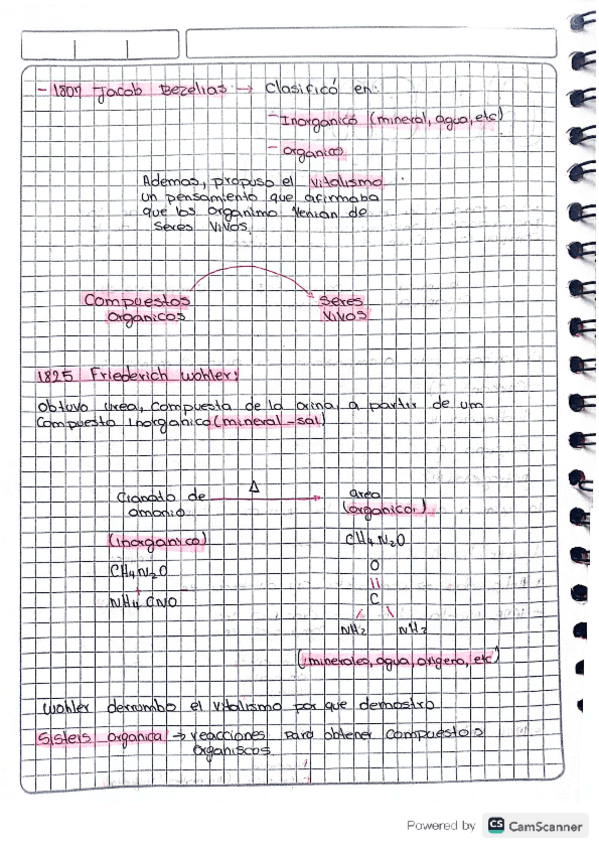 - 1807 Jacob Bezelias → Clasificó en:
- Inorganico (mineral, agua, etc)
- organico
Ademas, propuso el vitalismo
un pensamiento que afirmaba
que los organimo venian de
seres vivos.
Compuestos
organicos
seres
vivos
1825 Friederich wohler:
obtuvo urea, compuesta de la orina, a partir de um
compuesto inorganico (mineral-sal)
Cianato de
amonio
Δ
area
(organico)
(inorganico)
CH4N2O
CH4N2O
NH4 CNO
O
C
NH2
NH2
(minerales, agua, oxigeno, etc)
wohler derrumbo el vitalismo por que demostro
Sisteis organica → reacciones para obtener compuestos
organiscos
Powered by CS CamScanner